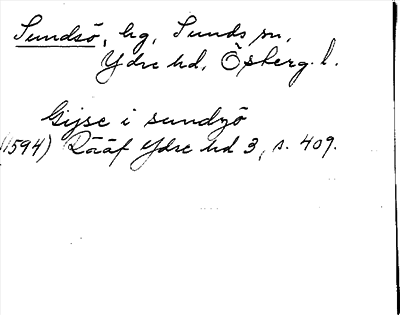 Sundsö, hg, Sunds sn,
Ydre hd, Österg. l.
Gijse i sundzö
(1594) Rääf Ydre hd 3, s. 409.